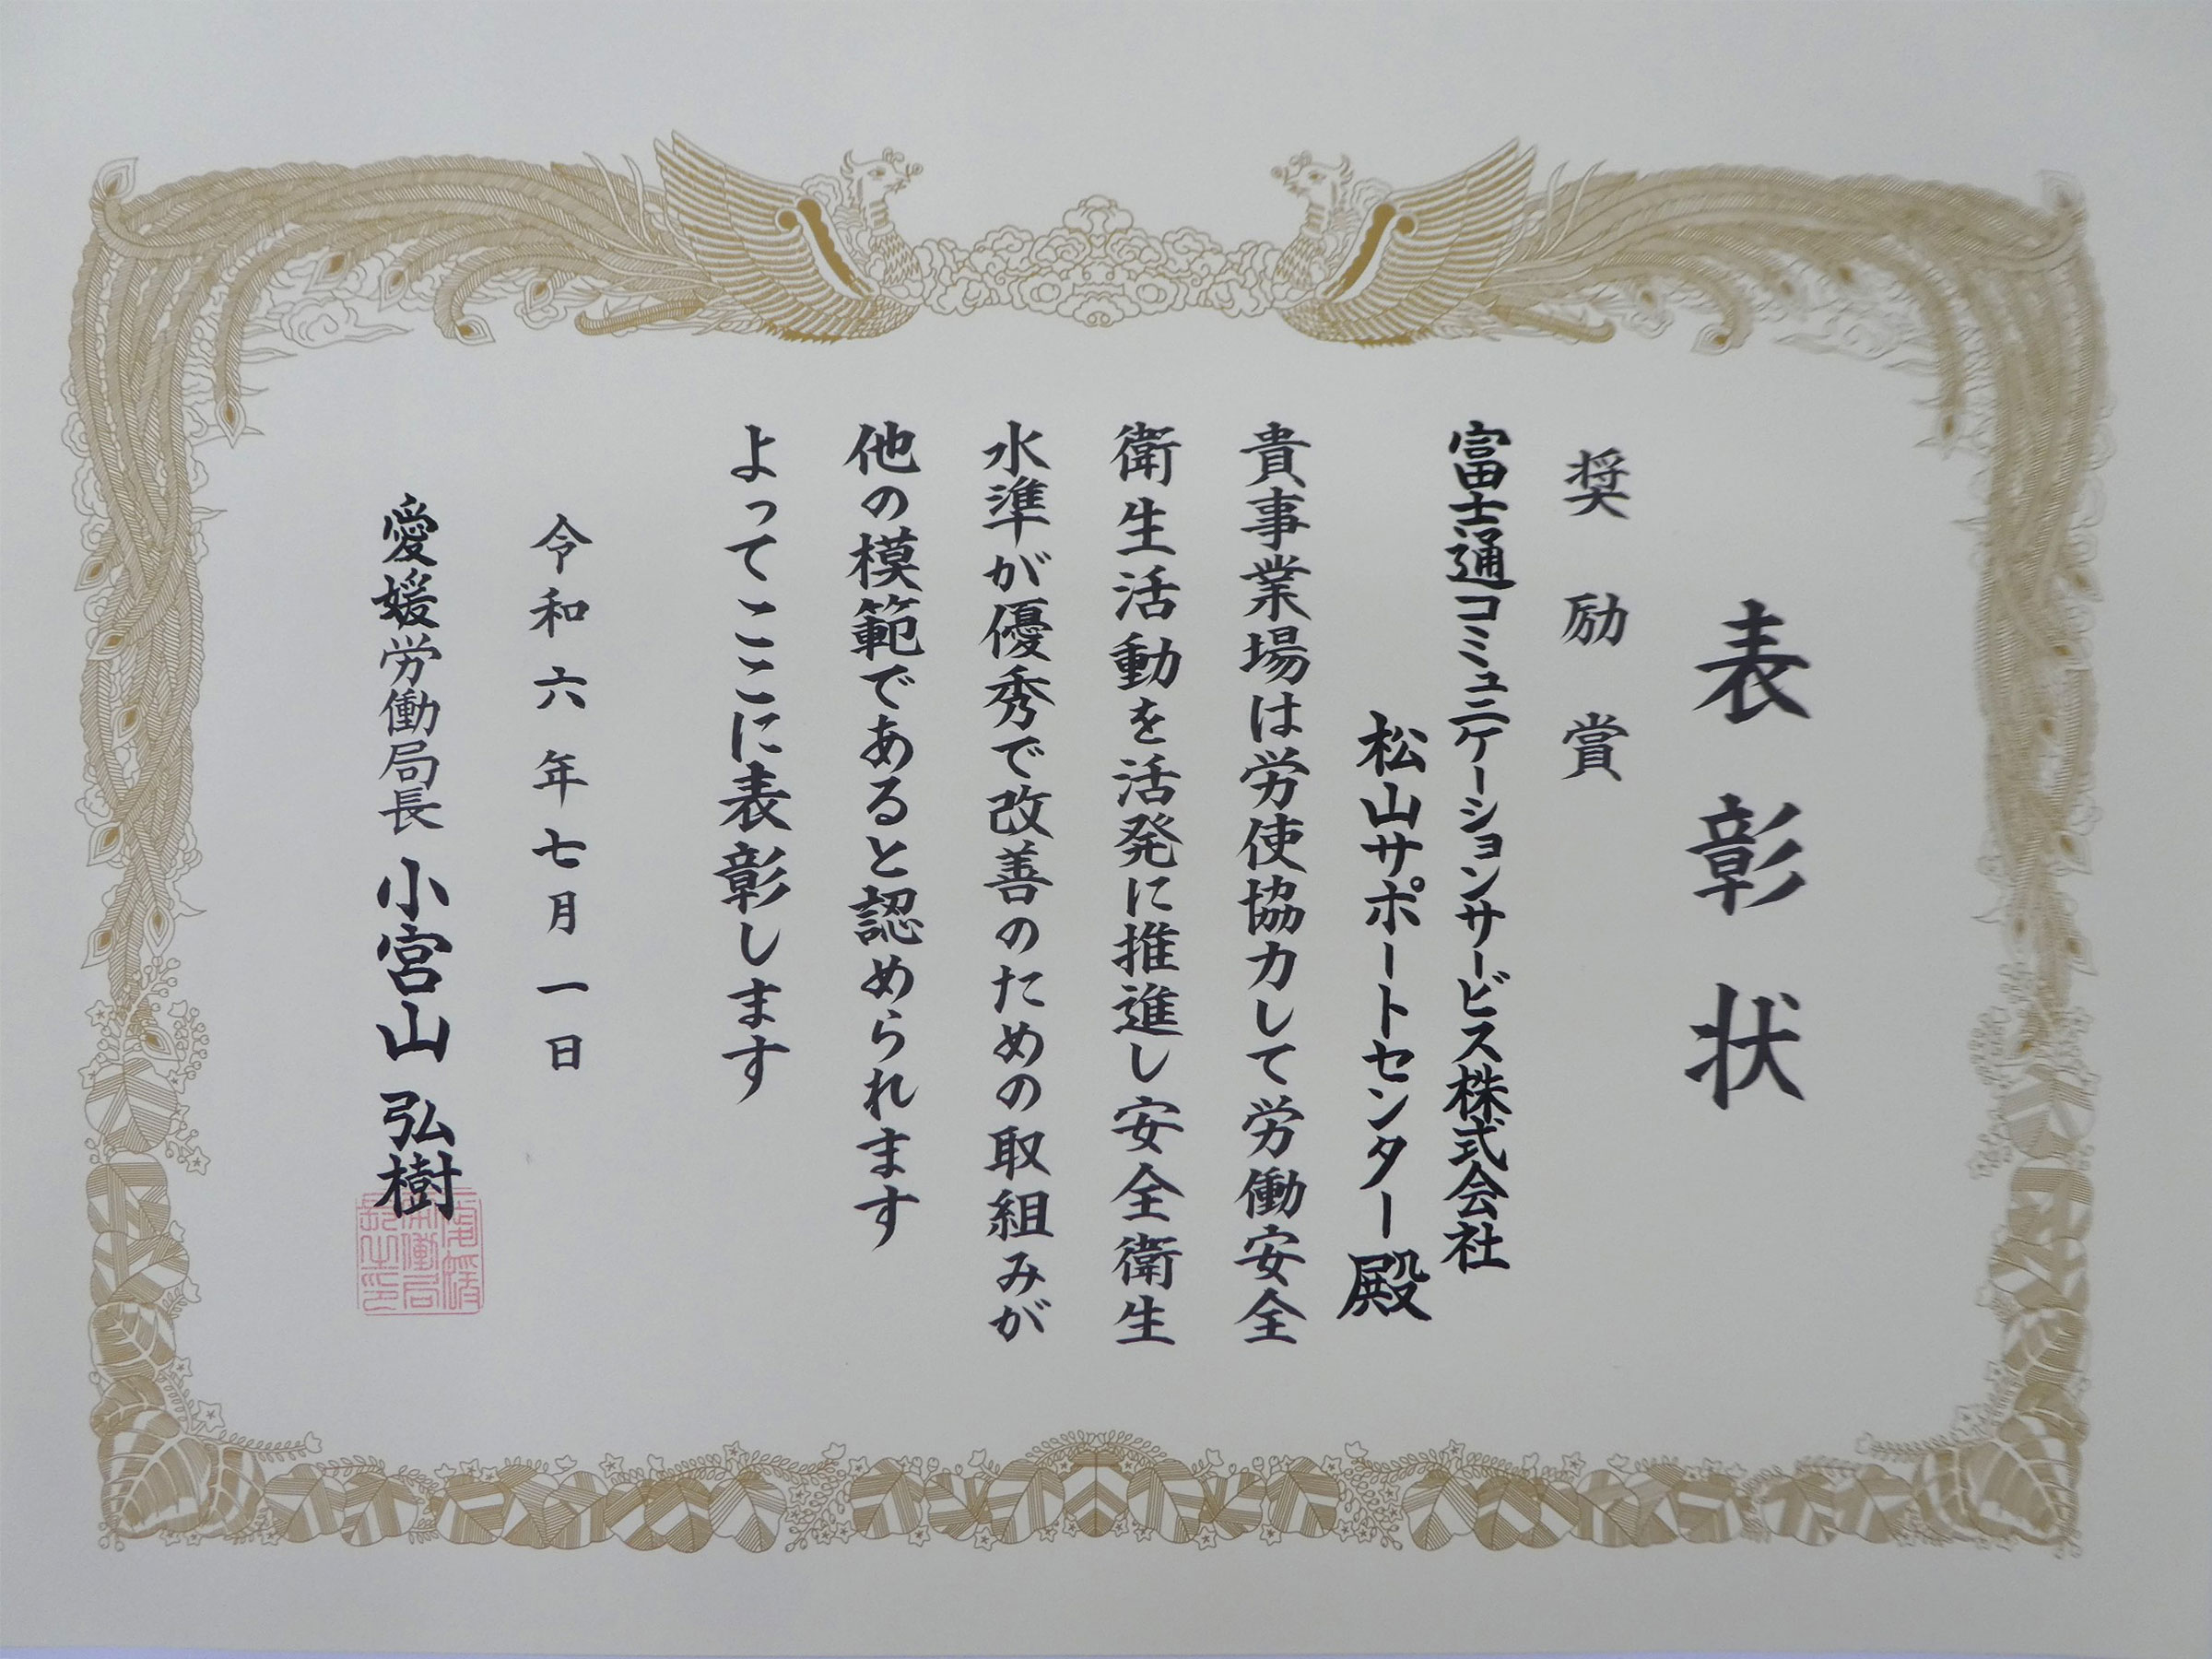 表彰状
奨励賞
富士通コミュニケーションサービス株式会社
松山サポートセンター殿
貴事業場は労使協力して労働安全
衛生活動を活発に推進し安全衛生
水準が優秀で改善のための取組みが
他の模範であると認められます
よってここに表彰します
令和六年七月一日
愛媛労働局長 小宮山 弘樹